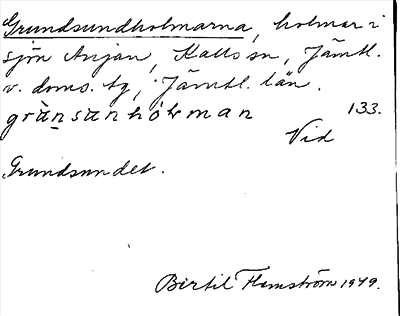 Grundsundholmarna, holmar i
sjön Anjan, Kalls sn, Jämtl.
v. doms. tg, Jämtl. län.
grùnsunhòḷman 133.
Vid
Grundsundet.
Bertil Flemström 1949.